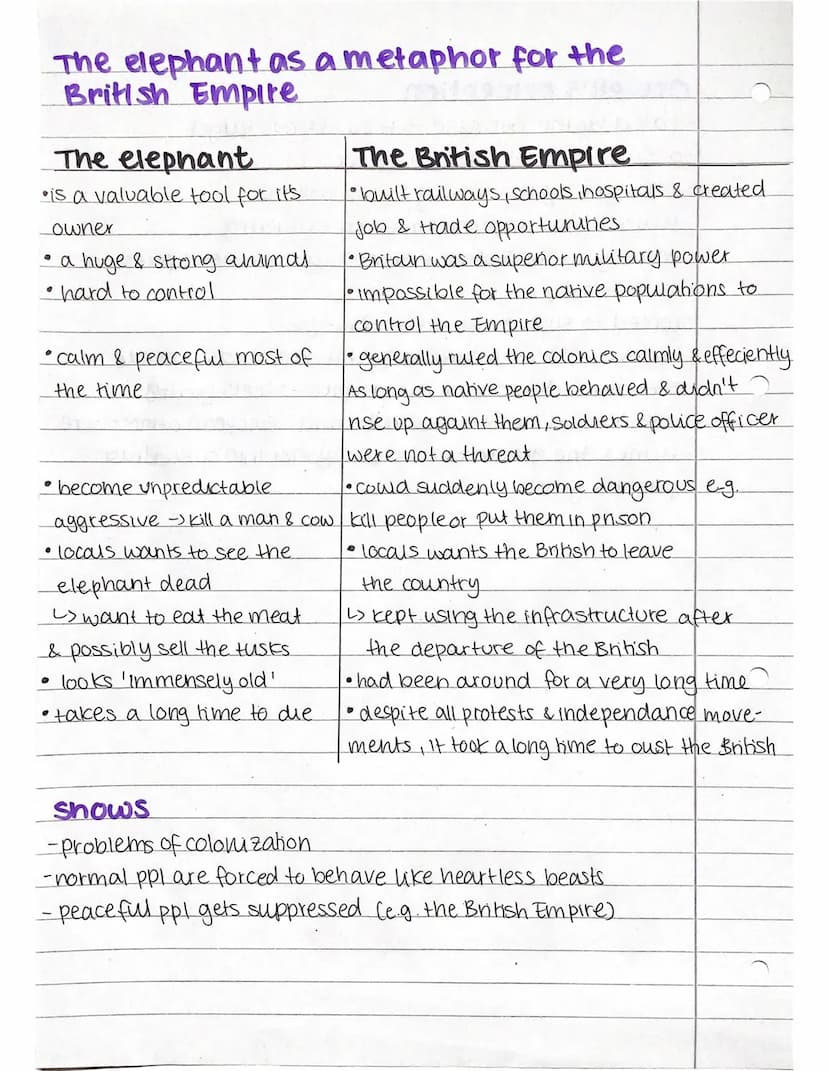 The elephant as a metaphor for the
British Empire
The elephant
• is a valuable tool for it's
owner
• a huge & strong animal
• hard to control
• calm & peaceful most of
the time
• become unpredictable
aggressive → kill a man & cow
• locals wants to see the
elephant dead
↳ want to eat the meat
& possibly sell the tusks
• looks 'immensely old'
• takes a long time to die
The British Empire
• built railways, schools, hospitals & created
job & trade opportunities
• Britain was a superior military power
• impossible for the native populations to
control the Empire
• generally ruled the colonies calmly & effeciently
As long as native people behaved & didn't
rise up againt them, soldiers & police officer
were not a threat
• could suddenly become dangerous e.g.
kill people or put them in prison
• locals wants the British to leave
the country
↳ kept using the infrastructure after
the departure of the British
• had been around for a very long time
• despite all protests & independance move-
ments, it took a long time to oust the British
Shows
- problems of colonization
- normal ppl are forced to behave like heartless beasts
- peaceful ppl gets suppressed (e.g. the British Empire)